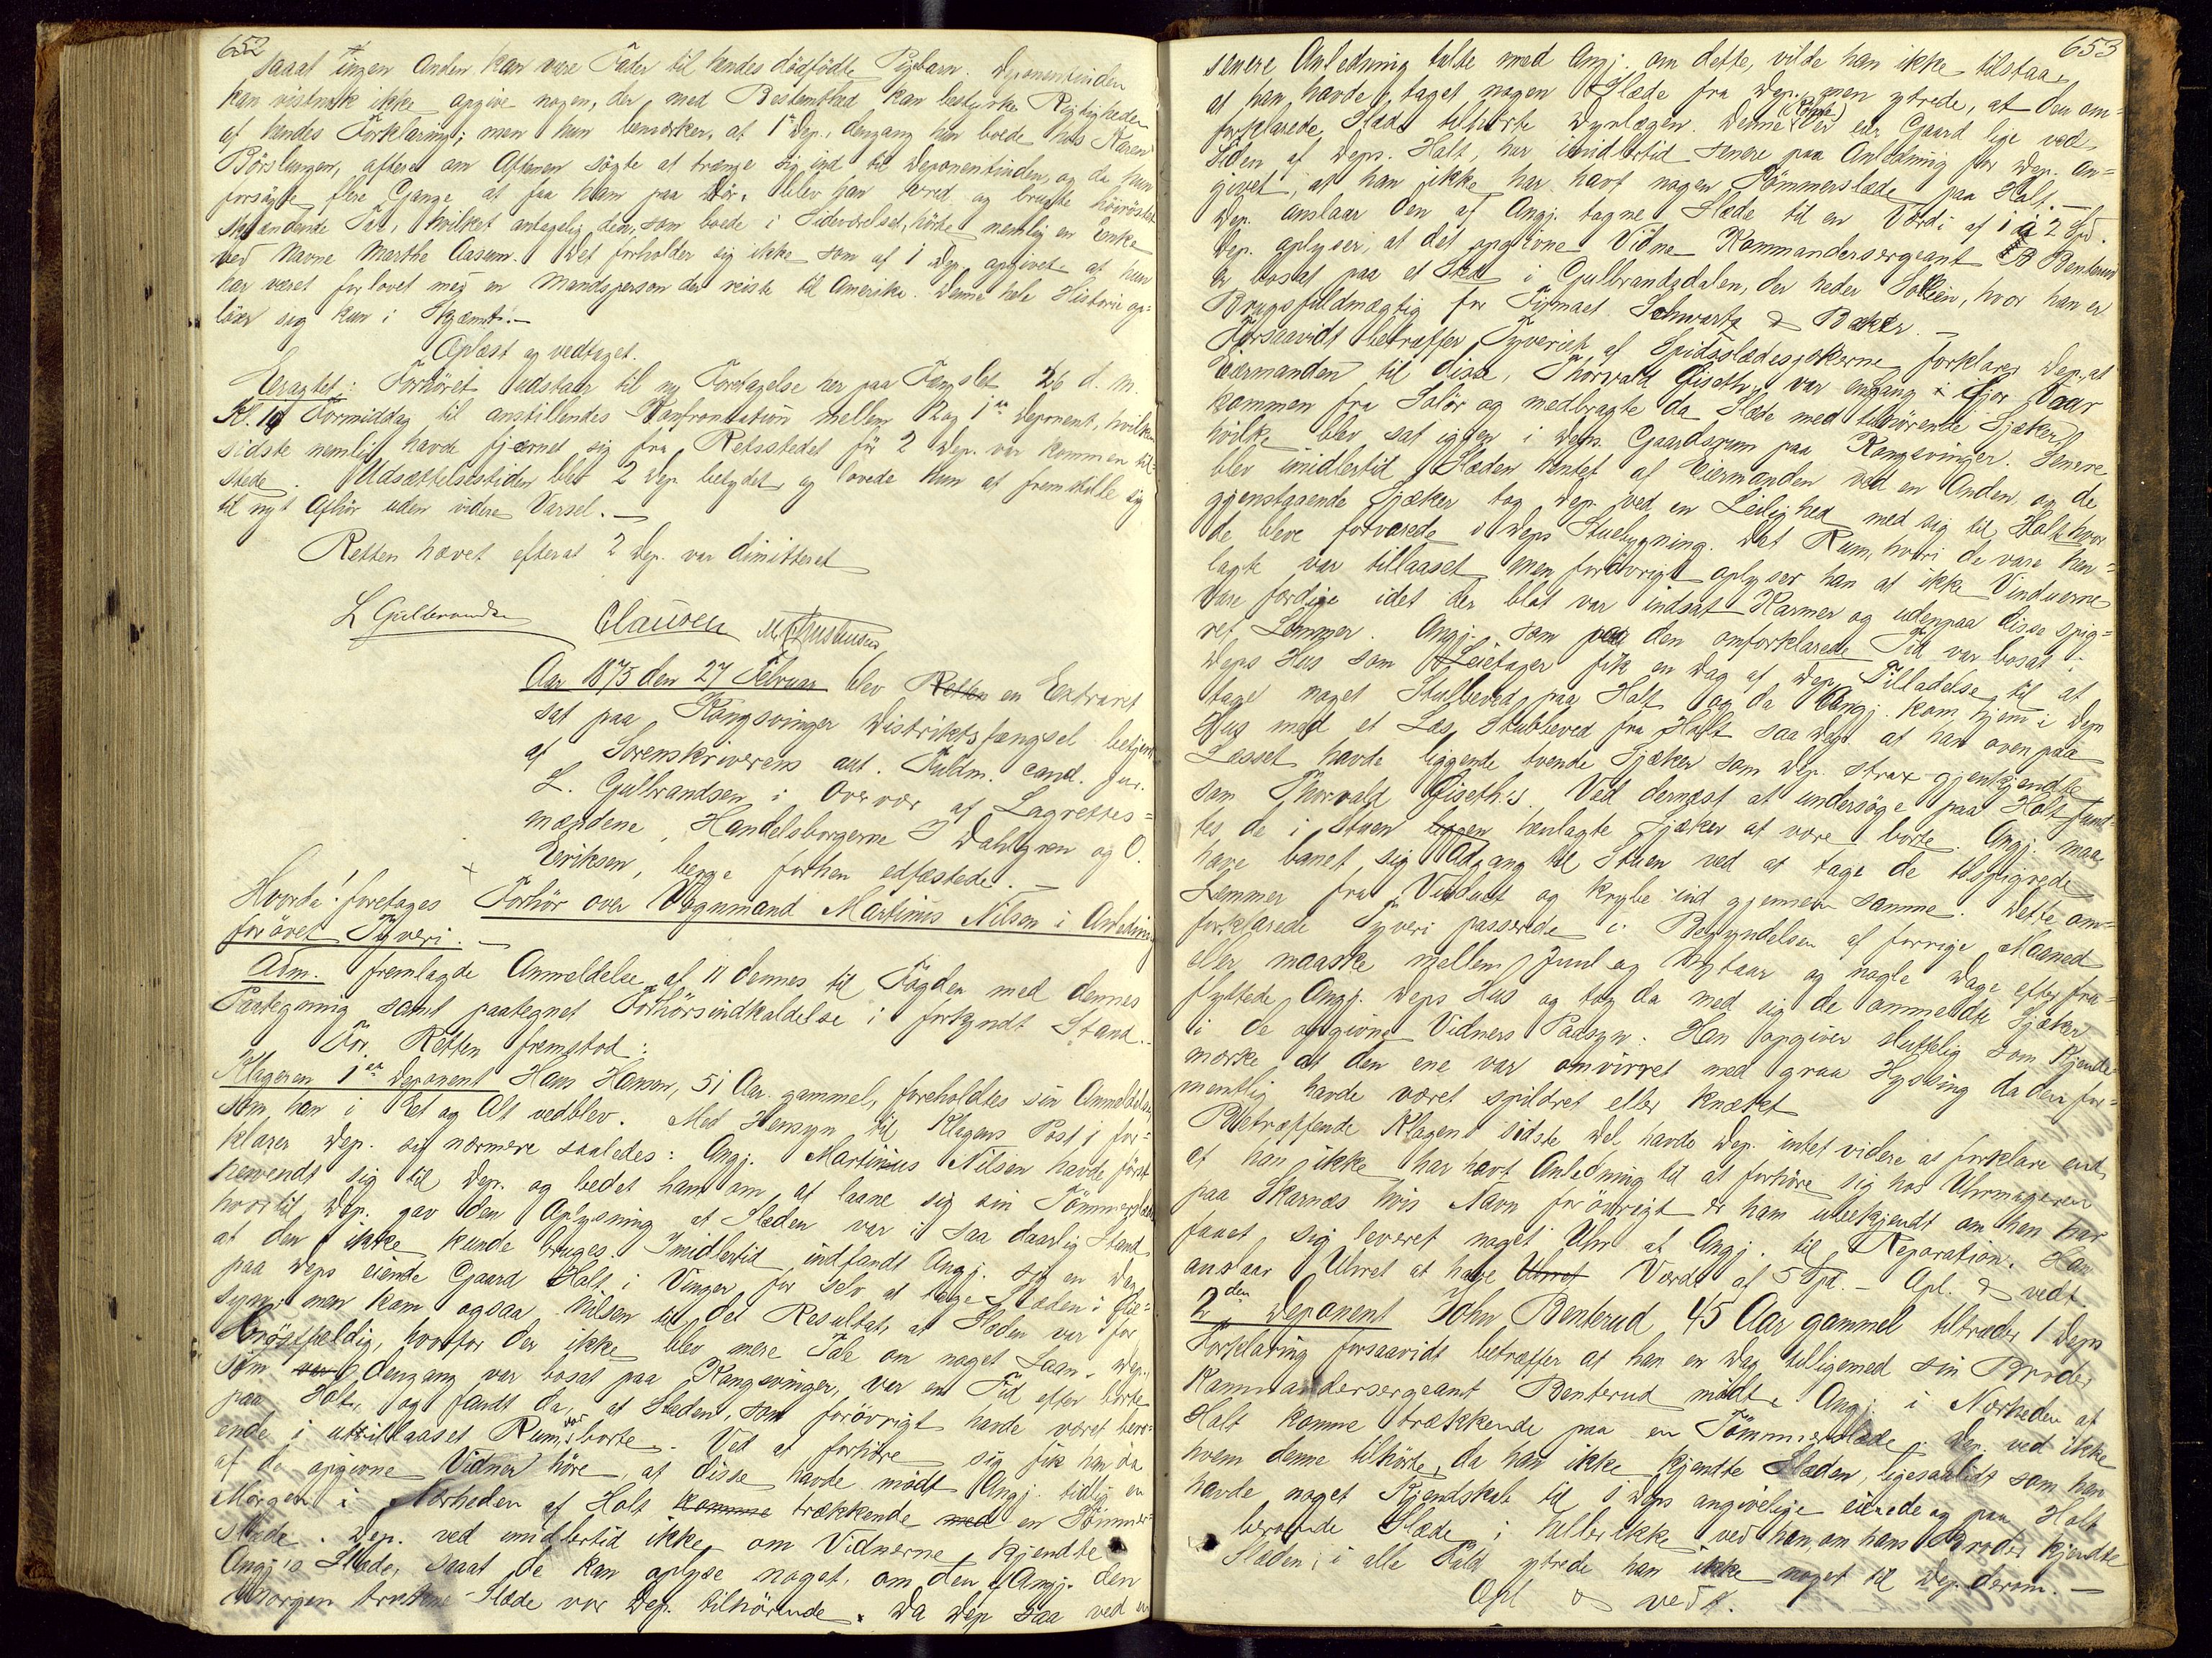 652
saaat ingen Anden kan være Fader til hendes dödfödte Pigebarn. Deponentinden
kan vistnok ikke opgive nogen, der med Bestemthed kan bestyrke Rigtigheden
af hendes Forklaring; men hun bemærker, at 1ste Dep., dengang hun boede hos Karen
Pörslungen, oftere om Aftenen sögte at trænge sig ind til Deponentinden, og da hun
forsögte flere Gange at faa ham paa Dör, blev han vred og brugte höiröstet
skjændende Tale, hvilket antagelig den, som boede i Sideværelset, hörte nemlig en Enke
ved Navne Marthe Aasum. Det forholder sig ikke som af 1 Dep. opgivet, at hun
har været forlovet med en Mandsperson der reiste til Amerika. Denne hele Historie op-
löser sig kun i Skjæmt. —
Oplæst og vedtaget.
Eragtet: Forhöret udstaar til ny Foretagelse her paa Fængslet 26 d. M.
Kl. 10 Formiddag til anstillendes Konfrontation mellem 2 og 1ste Deponent, hvilken
sidste nemlig havde fjærnet sig fra Retsstedet för 2 Dep. var kommen til-
stede. Udsættelsestiden blev 2 Dep. betydet, og lovede hun at fremstille sig
til nyt Afhör uden videre Varsel. —
Retten hævet efterat 2 Dep. var dimitteret
L Gulbrandsen Clausen M. Christiansen
Aar 1875 den 27 Februar blev Retten en Extraret
sat paa Kongsvinger Distriktsfængsel betjent
af Sorenskriverens aut. Fuldm. cand. jur.
L. Gulbrandsen i Overvær af Lagrettes-
mændene, Handelsborgerne J Dahlgren og O.
Eriksen, begge forhen edfæstede. —
Hvorda! foretages Forhör over Vognmand Martinus Nilsen i Anledning
forövet Tyveri. —
Adm. fremlagde Anmeldelse af 11 dennes til Fogden med dennes
Paategning samt paategnet Forhörsindkaldelse i forkyndt Stand.-
For Retten fremstod:
Klageren 1ste Deponent Hans Hansen, 51 Aar gammel, foreholdtes sin Anmeldelse
som han i Eet og Alt vedblev. Med Hensyn til Klagens Post 1 for-
klarer Dep. sig nærmere saaledes: Angj. Martinius Nilsen havde först
henvendt sig til Dep. og bedet ham om, at laane sig sin Tömmerslæde
hvortil Dep. gav den Oplysning at Slæden var i saa daarlig Stand
at den ikke kunde bruges. Imidlertid indfandt Angj. sig en Dag
paa Deps eiende Gaard Holt i Vinger for selv at tage Slæden i Øie-
syn; men kom ogsaa Nilsen til det Resultat, at Slæden var for
bröstfældig, hvorfor der ikke blev mere Tale om noget Laan. Dep.,
som var dengang var bosat paa Kongsvinger, var en Tid efter borte
paa Holt, og fandt da, at Slæden, som forövrigt havde været bero-
ende i utillaaset Rum, var borte. Ved at forhöre sig fik han da
af de opgivne Vidner höre, at disse havde mödt Angj. tidlig en
Morgen i Nærheden af Holt komme trækkende med en Tömmer-
slæde. Dep. ved imidlertid ikke, om Vidnerne kjendte
Angj's Slæde, saaat de kan oplyse noget, om den af Angj. den
Morgen trukne Slæde var Dep. tilhörende. Da Dep saa ved en
653
senere Anledning talte med Angj. om dette, vilde han ikke tilstaa,
at han havde taget nogen Slæde fra Dep., men ytrede, at den om-
forklarede Slæde tilhörte Dyrlægen. Denne (Römte) der eier Gaard lige ved
Siden af Deps. Holt, har imidlertid senere paa Anledning for Dep. an-
givet, at han ikke har havt nogen Tömmerslæde paa Holt. —
Dep. anslaar den af Angj. tagne Slæde til en Værdi af 1 à 2 Spd.
Dep. oplyser, at det opgivne Vidne Kommandersergeant B Benterud
er bosat paa et Sted i Gulbrandsdalen, der heder Sollien, hvor han er
Brugsfuldmægtig for Firmaet Schwartz & Bakke. —
Forsaavidt betræffer Tyveriet af Spidsslædesjækerne forklarer Dep., at
Eiermanden til disse, Thorvald Giseth, var engang i fjor Vaar
kommen fra Solör og medbragte da Slæde med tilhörende Sjæker,
hvilke blev sat igjen i Deps. Gaardsrum paa Kongsvinger. Senere
blev imidlertid Slæden hentet af Eiermanden ved en Anden, og de
gjenstaaende Sjæker tog Dep. ved en Leilighed med sig til Holt hvor
de bleve forvarede i Deps Stuebygning. Det Rum, hvori de vare hen-
lagte var tillaaset men forövrigt oplyser han at ikke Vinduerne
vare færdige idet der blot var indsat Karmer og udenpaa disse spig-
ret Lemmer. Angj. som paa den omforklarede Tid var bosat i
Deps Hus som Leietager fik en Dag af Dep. Tilladelse til at
tage noget Stubbeved paa Holt og da Angj. kom hjem i Deps
Hus med et Læs Stubbeved fra Holt saa Dep. at han ovenpaa
Læsset havde liggende tvende Sjæker som Dep. strax gjenkjendte
som Thorvald Giseth's. Ved dernæst at undersöge paa Holt fand-
tes de i Stuen liggen henlagte Sjæker at være borte. Angj. maa
have banet sig Adgang til Stuen ved at tage de tilspigrede
Lemmer fra Vinduet og krybe ind gjennem samme. Dette om-
forklarede Tyveri passerede i Begyndelsen af forrige Maaned
eller maaske mellem Juul og Nytaar og nogle Dage efter fra-
flyttede Angj. Deps Hus og tog da med sig de anmeldte Sjæker
i de opgivne Vidners Paasyn. Han opgiver sluttelig som Kjende-
mærke at den ene var omvirret med graa Hyssing da den for-
mentlig havde været spildret eller knækket
Betræffende Klagens sidste Del havde Dep. intet videre at forklare end
at han ikke har havt Anledning til at forhöre sig hos Uhrmageren
paa Skarnæs hvis Navn forövrigt er ham ubekjendt om han har
faaet sig leveret noget Uhr af Angj. til Reparation. Han
anslaar Uhret at have Uhret Værdi af 5 Spd. — Opl. & vedt.
2den Deponent John Benterud 45 Aar gammel tiltræder 1 Deps
Forklaring forsaavidt betræffer at han en Dag tilligemed sin Broder
Kommandersergeant Benterud mödte Angj. i Nærheden af
Holt komme trækkende paa en Tömmerslæde. Dep. ved ikke
hvem denne tilhörte, da han ikke kjendte Slæden, ligesaalidt som han
havde noget Kjendskab til 1 Deps angivelige eiende og paa Holt
beroende Slæde; heller ikke ved han, om hans Broder kjendte
Slæden; i alle Fald ytrede han ikke noget til Dep. derom. —
Opl & vedt.